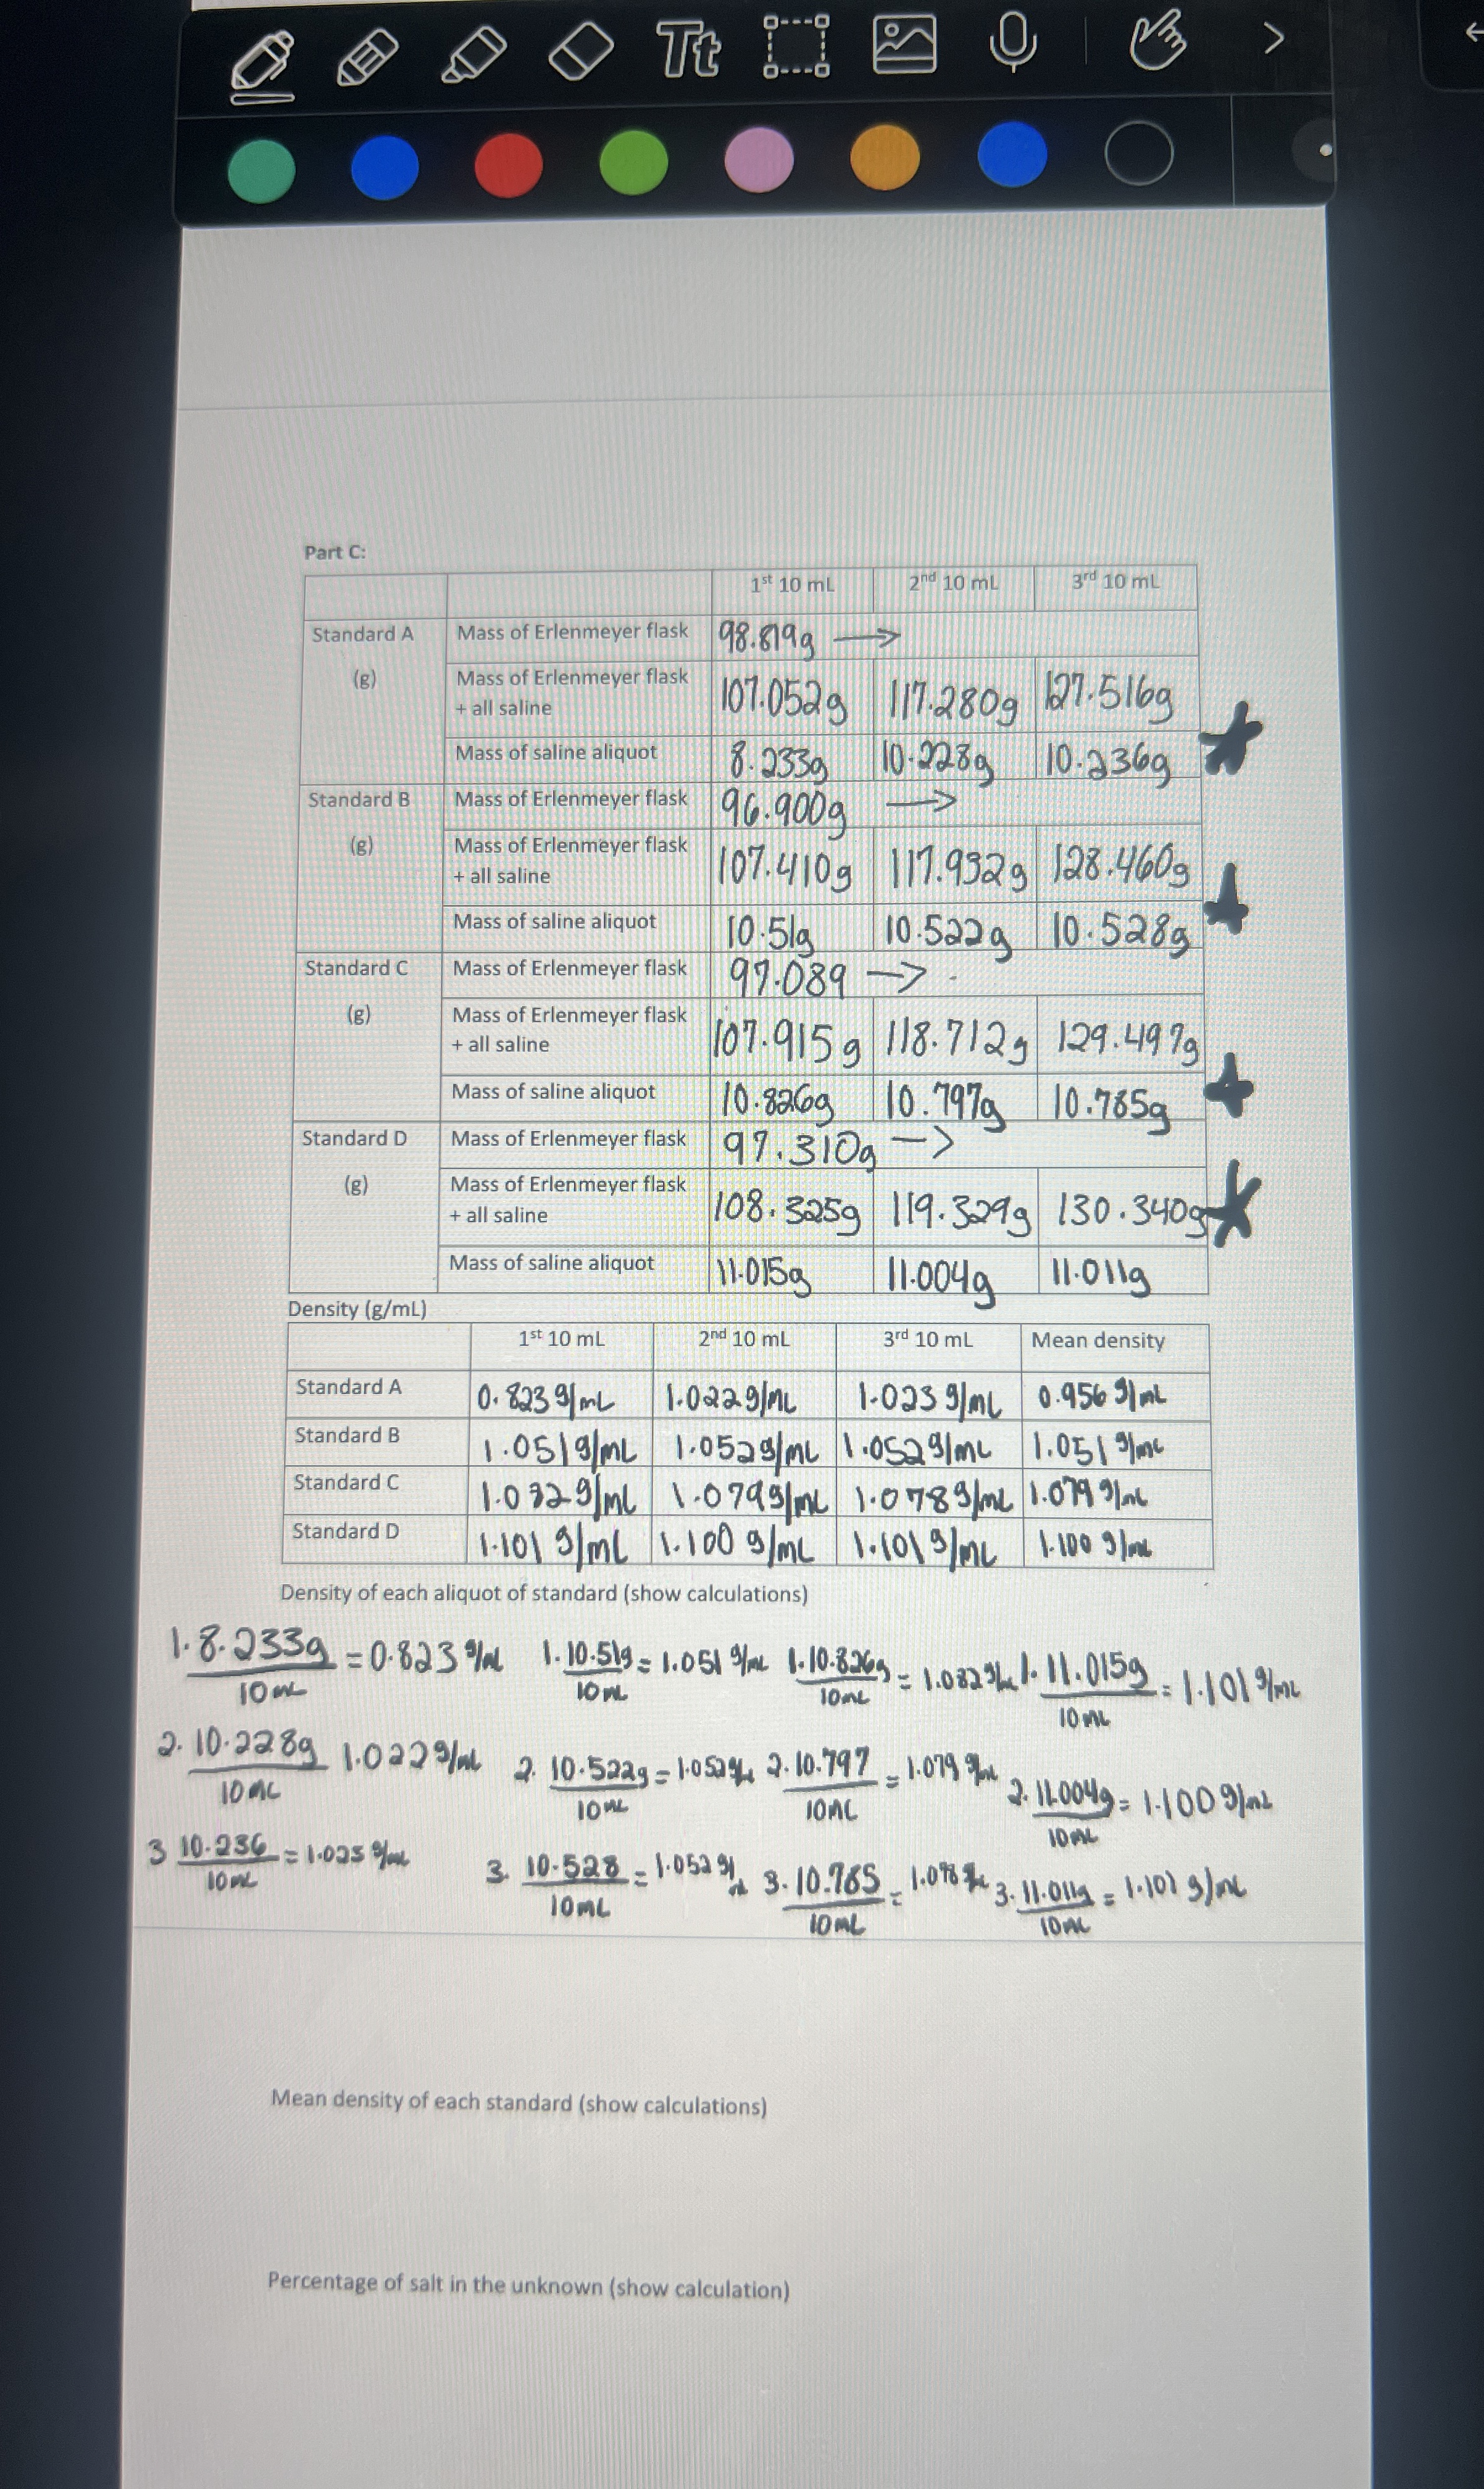 Tt
Part C:
1st 10 mL 2nd 10 mL 3rd 10 mL
Standard A Mass of Erlenmeyer flask 98.819g →
(g) Mass of Erlenmeyer flask + all saline 107.052g 117.280g 127.516g
Mass of saline aliquot 8.233g 10.228g 10.236g
Standard B Mass of Erlenmeyer flask 96.900g →
(g) Mass of Erlenmeyer flask + all saline 107.410g 117.932g 128.460g
Mass of saline aliquot 10.51g 10.522g 10.528g
Standard C Mass of Erlenmeyer flask 97.089 →
(g) Mass of Erlenmeyer flask + all saline 107.915g 118.712g 129.497g
Mass of saline aliquot 10.826g 10.797g 10.785g
Standard D Mass of Erlenmeyer flask 97.310g →
(g) Mass of Erlenmeyer flask + all saline 108.325g 119.329g 130.340g
Mass of saline aliquot 11.015g 11.004g 11.011g
Density (g/mL)
1st 10 mL 2nd 10 mL 3rd 10 mL Mean density
Standard A 0.823 g/mL 1.022g/mL 1.023 g/mL 0.956 g/mL
Standard B 1.051g/mL 1.052g/mL 1.052g/mL 1.051 g/mL
Standard C g/mL 1.079g/mL 1.078g/mL 1.079 g/mL
Standard D 1.101 g/mL 1.100 g/mL 1.101g/mL 1.100 g/mL
Density of each aliquot of standard (show calculations)
1. 8.233g / 10mL = 0.823 g/mL 1. 10.51g / 10mL = 1.051 g/mL 1. 10.826g / 10mL = 1.082 g/mL 1. 11.015g / 10mL = 1.101 g/mL
2. 10.228g / 10mL 1.022g/mL 2. 10.522g / 10mL = 1.052 g/mL 2. 10.797 / 10mL = 1.079 g/mL 2. 11.004g / 10mL = 1.100 g/mL
3 10.236 / 10mL = 1.023 g/mL 3. 10.528 / 10mL = 1.052 g/mL 3. 10.785 / 10mL = 1.078 g/mL 3. 11.011g / 10mL = 1.101 g/mL
Mean density of each standard (show calculations)
Percentage of salt in the unknown (show calculation)